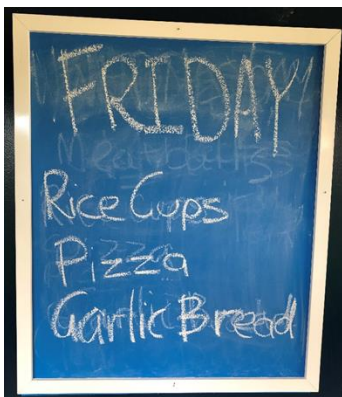 FRIDAY
Rice Cups
Pizza
Garlic Bread